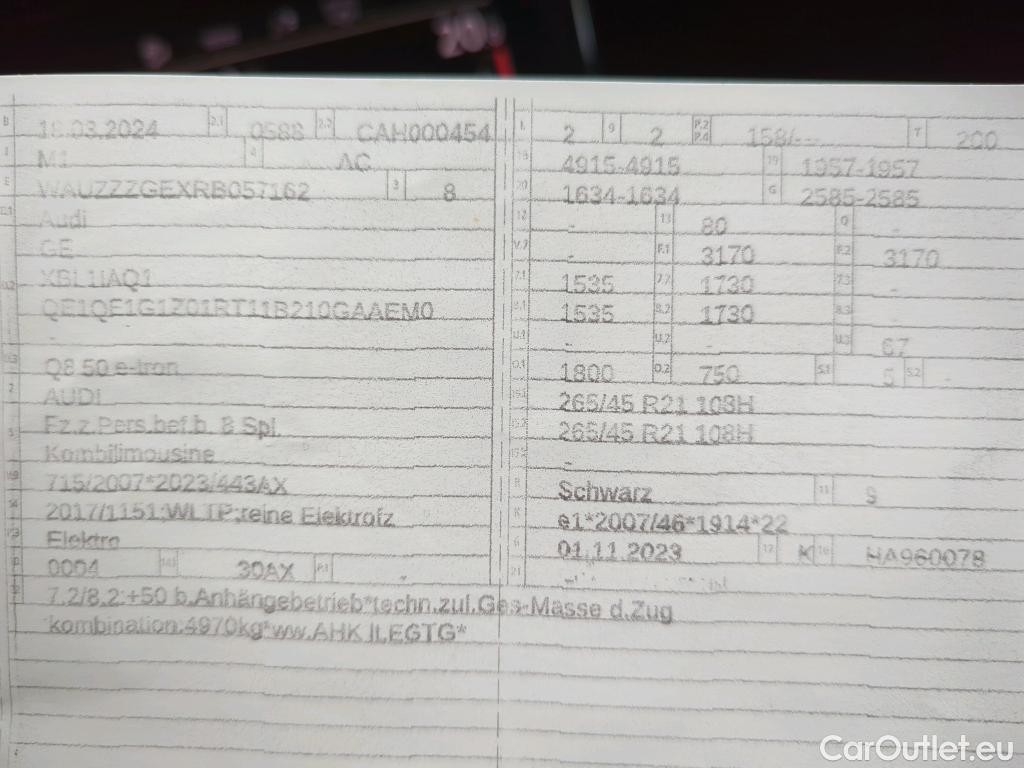 B 18.03.2024 2.1 0588 2.2 CAH000454
J M1 4 AC
E WAUZZZGEXRB057162 3 8
D.1 Audi
GE
XBL1IAQ1
QE1QE1G1Z01RT11B210GAAEM0
-
D.3 Q8 50 e-tron
2 AUDI
5 Fz.z.Pers.bef.b. 8 Spl.
Kombilimousine
715/2007*2023/443AX
2017/1151;WLTP;reine Elektrofz
Elektro
0004 14.1 30AX P.1 -
L 2 9 2 P.2 P.4 158/--- T 200
18 4915-4915 19 1957-1957
20 1634-1634 G 2585-2585
12 - 13 80 Q -
V.7 - F.1 3170 F.2 3170
7.1 1535 7.2 1730 7.3 -
8.1 1535 8.2 1730 8.3 -
U.1 - U.2 - U.3 67
O.1 1800 O.2 750 S.1 5 S.2 -
15.1 265/45 R21 108H
15.2 265/45 R21 108H
15.3 -
R Schwarz 11 9
K e1*2007/46*1914*22
6 01.11.2023 17 K 16 HA960078
21
7.2/8.2:+50 b.Anhängebetrieb*techn.zul.Ges-Masse d.Zug
kombination:4970kg*ww.AHK lt.EGTG*
CarOutlet.eu